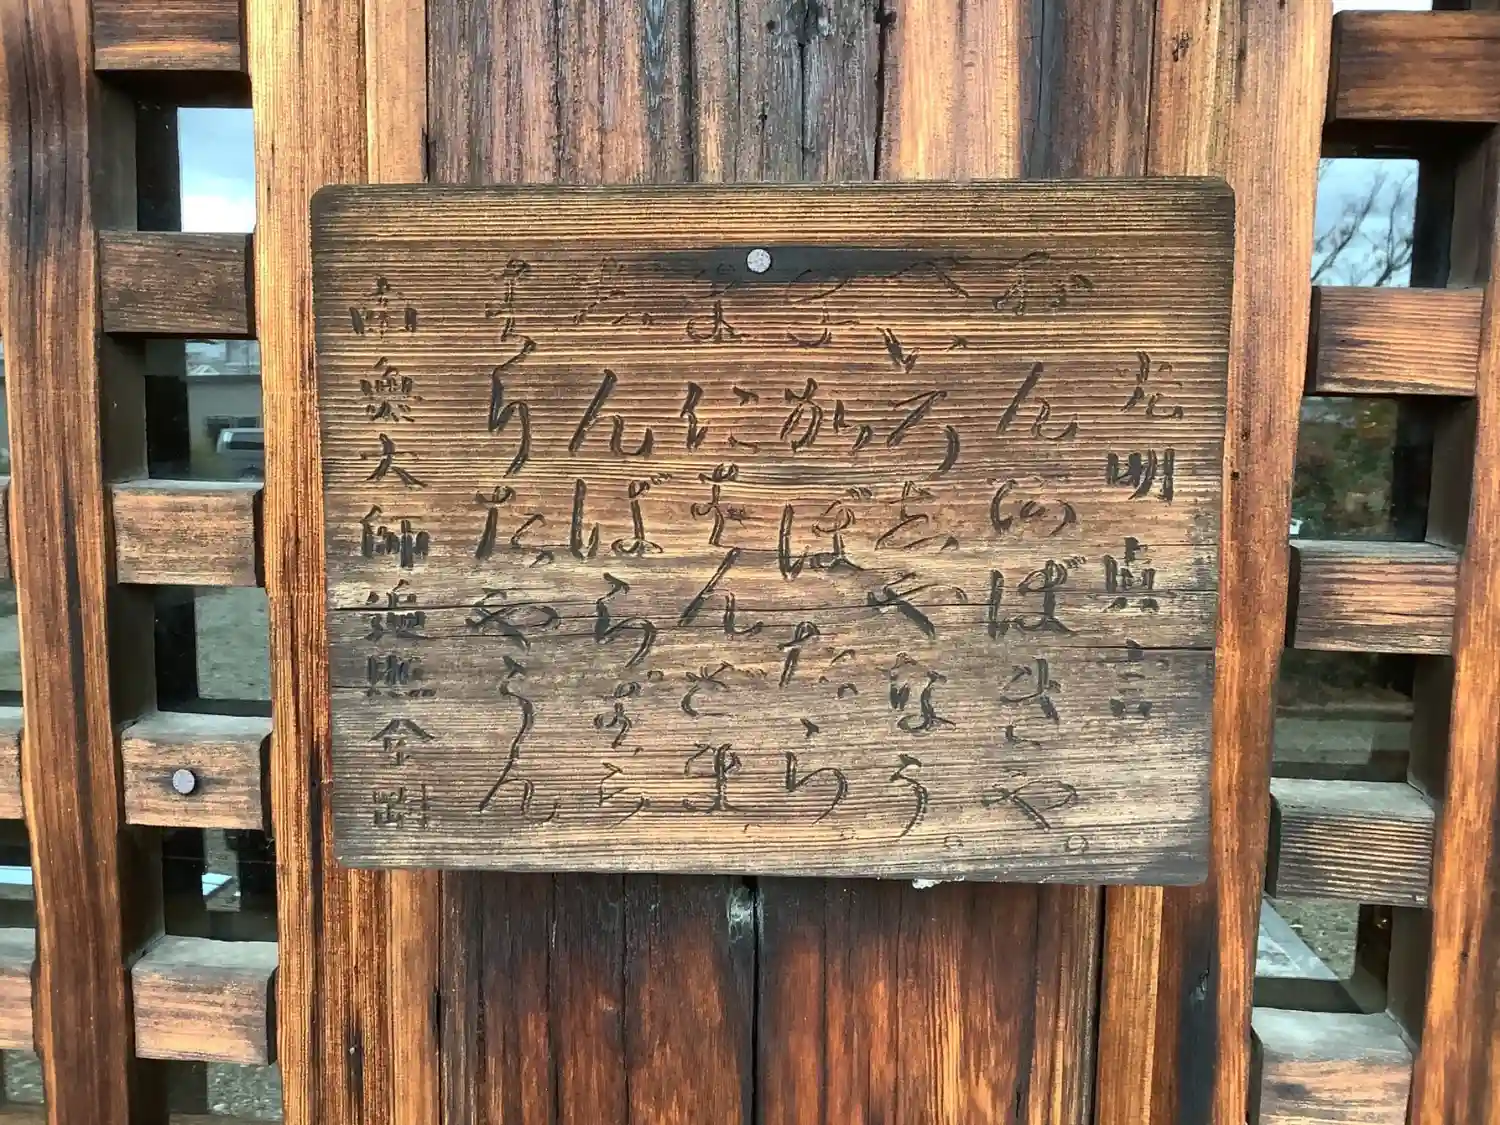 光明真言
おんあぼきや
べいろしやなう
まかぼだら
まにはんどま
じんばらはら
はらたやうん
南無大師遍照金剛